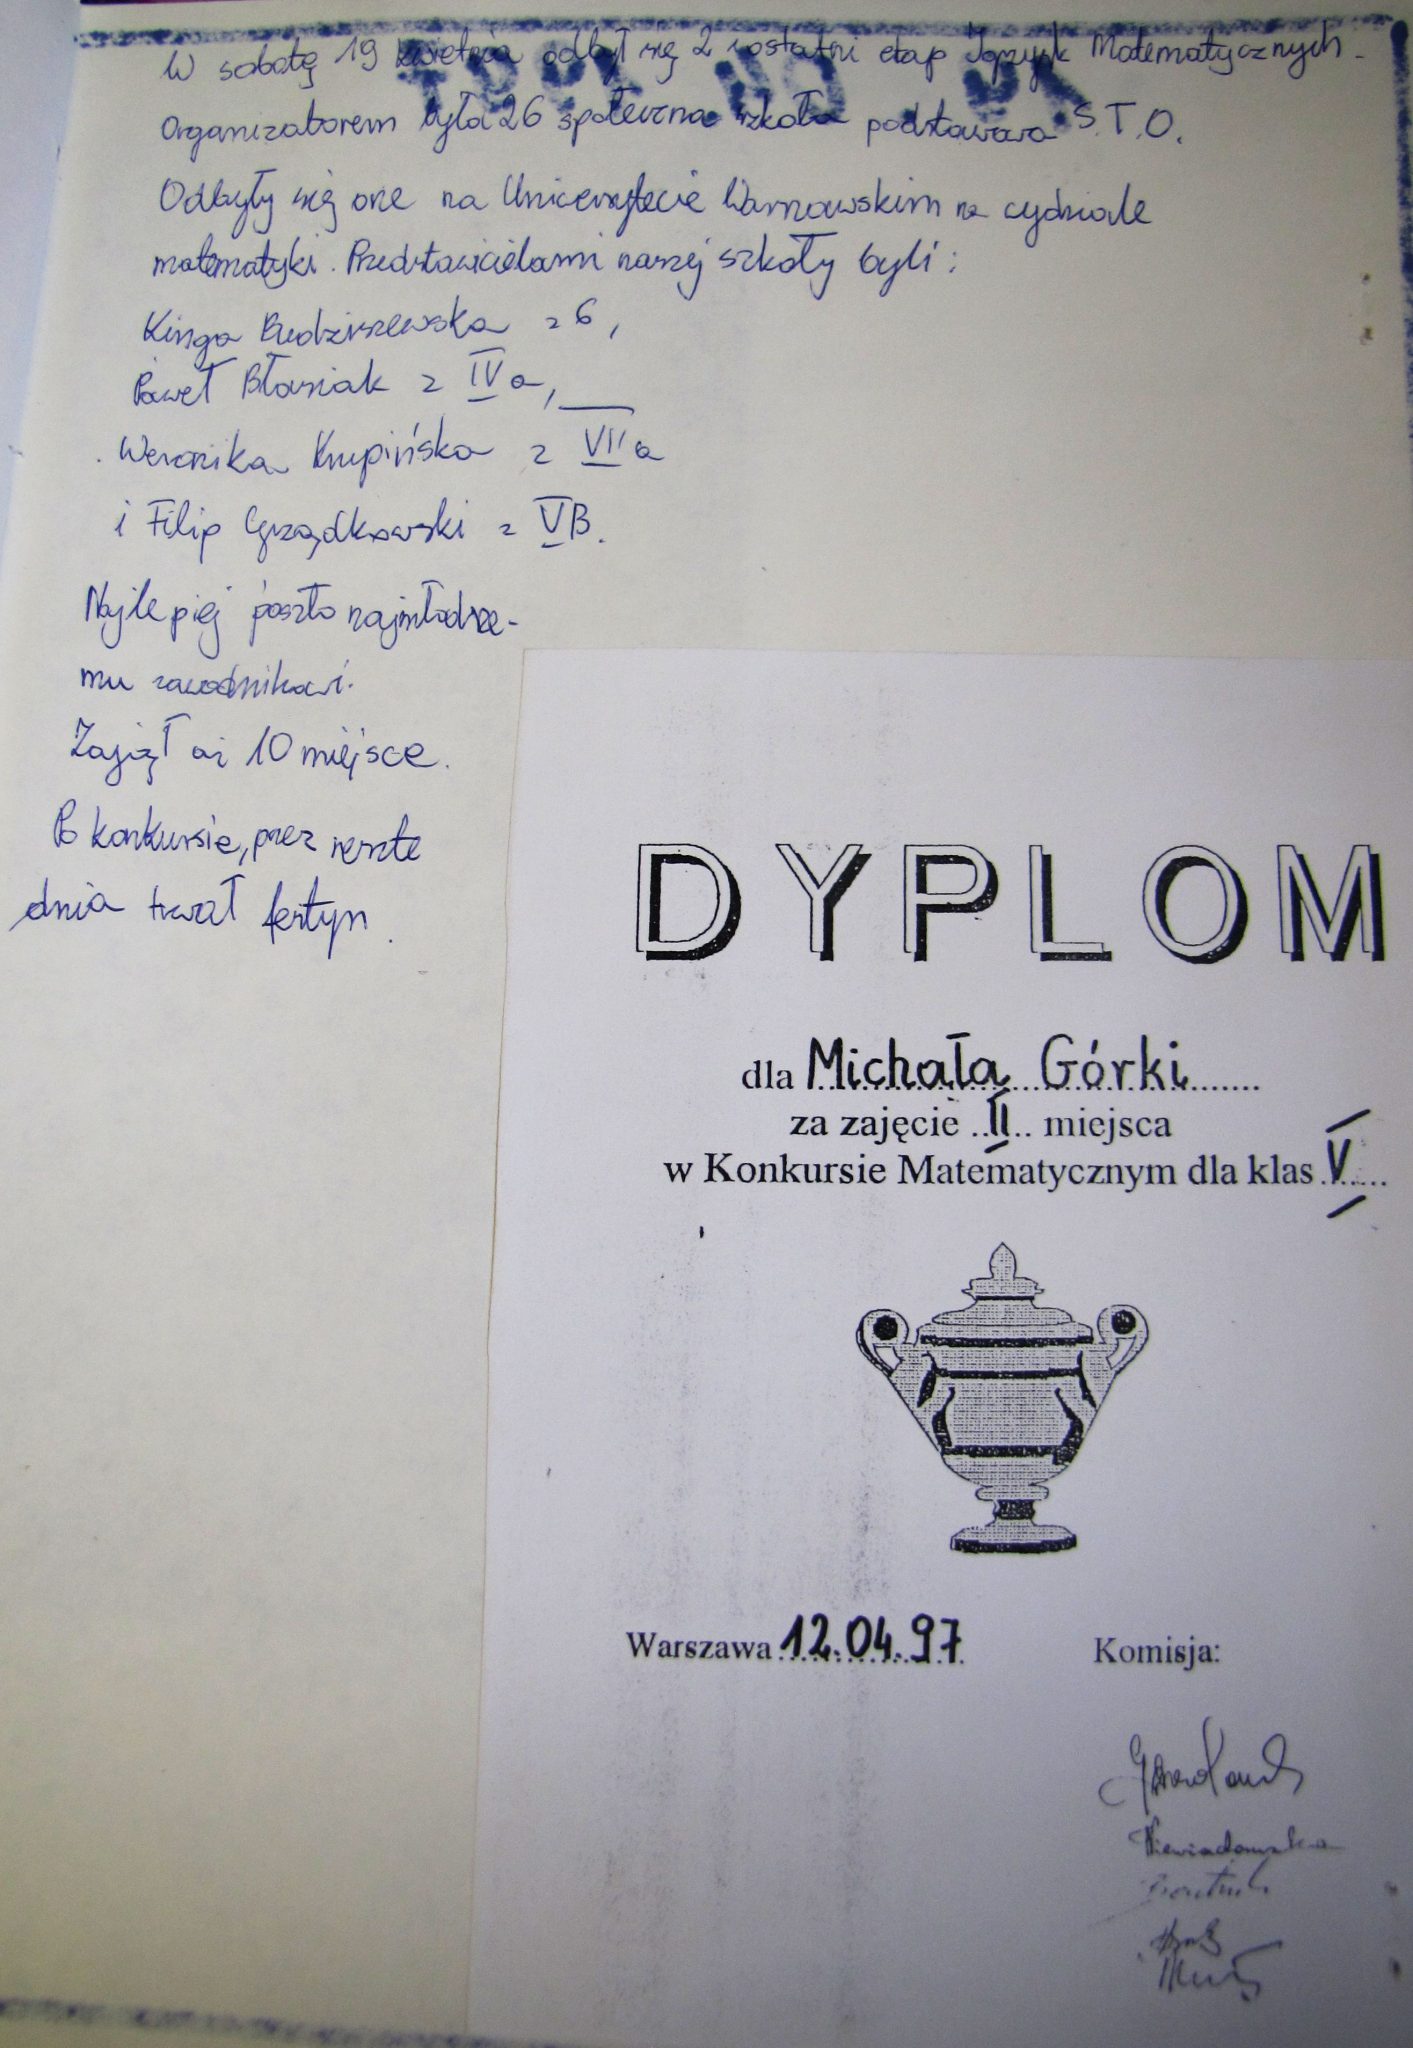 W sobotę 19 kwietnia odbył się 2 i ostatni etap Igrzysk Matematycznych.
Organizatorem była 26 społeczna szkoła podstawowa S.T.O.
Odbyły się one na Uniwersytecie Warszawskim na wydziale
matematyki. Przedstawicielami naszej szkoły byli:
Kinga Budziszewska z 6,
Paweł Błasiak z IV a,
Weronika Krupińska z VII a
i Filip Grządkowski z V B.
Najlepiej poszło najmłodsze-
mu zawodnikowi.
Zajął aż 10 miejsce.
Po konkursie, przez resztę
dnia trwał festyn.
DYPLOM
dla Michała Górki
za zajęcie II miejsca
w Konkursie Matematycznym dla klas V
Warszawa 12.04.97 Komisja:
Niewiadomska